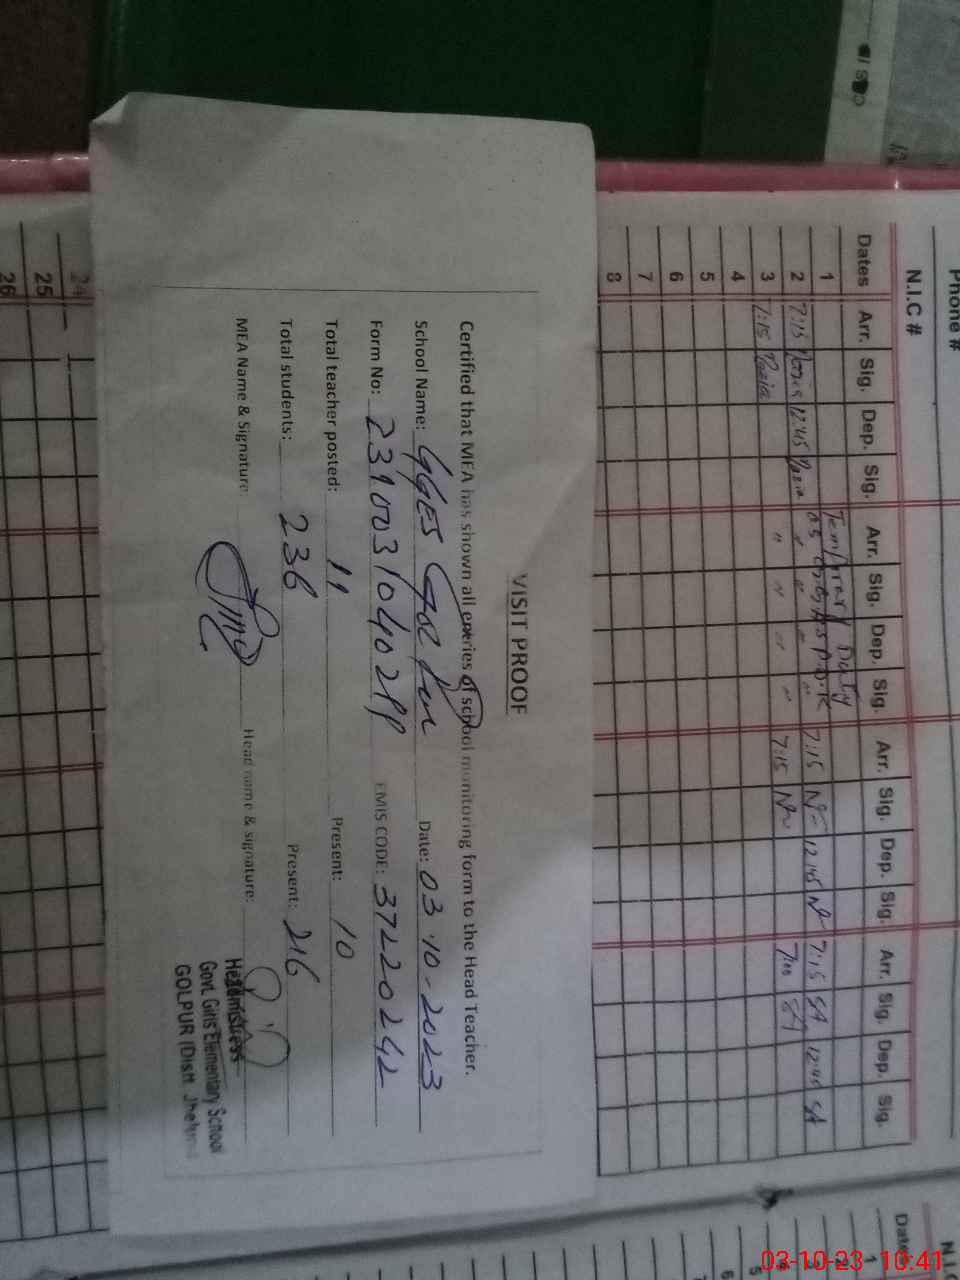 Phone #
N.I.C #
Dates Arr. Sig. Dep. Sig. Arr. Sig. Dep. Sig. Arr. Sig. Dep. Sig. Arr. Sig. Dep. Sig.
1 Temporary Duty
2 7:15 Nazia 12:45 Nazia 7:15 12:45 7:15 SA 12:45 SA
3 7:15 Nazia " " " " 7:15 7:00 SA
4
5
6
7
8
VISIT PROOF
Certified that MEA has shown all entries of school monitoring form to the Head Teacher.
School Name: GGES Gol Pur Date: 03-10-2023
Form No: EMIS CODE: 37220242
Total teacher posted: 11 Present: 10
Total students: 236 Present: 216
MEA Name & Signature: Head name & signature:
Headmistress
Govt. Girls Elementary School
GOLPUR (Distt. Jhelum)
24
25
26
N.I.C
Dates
1
5
6
03-10-23 10:41